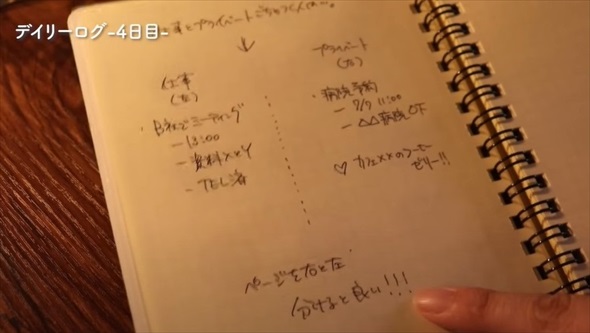 デイリーログ-4日目-
事とプライベートごちゃつくんだー。
↓
仕事
(左)
・B社とミーティング
- 13:00
- 資料××
- TEL済
プライベート
(右)
・病院予約
- 7/7 11:00
- △△病院
♡ カフェ××のコーヒー
ゼリー!!
ページを右と左
分けると良い!!!